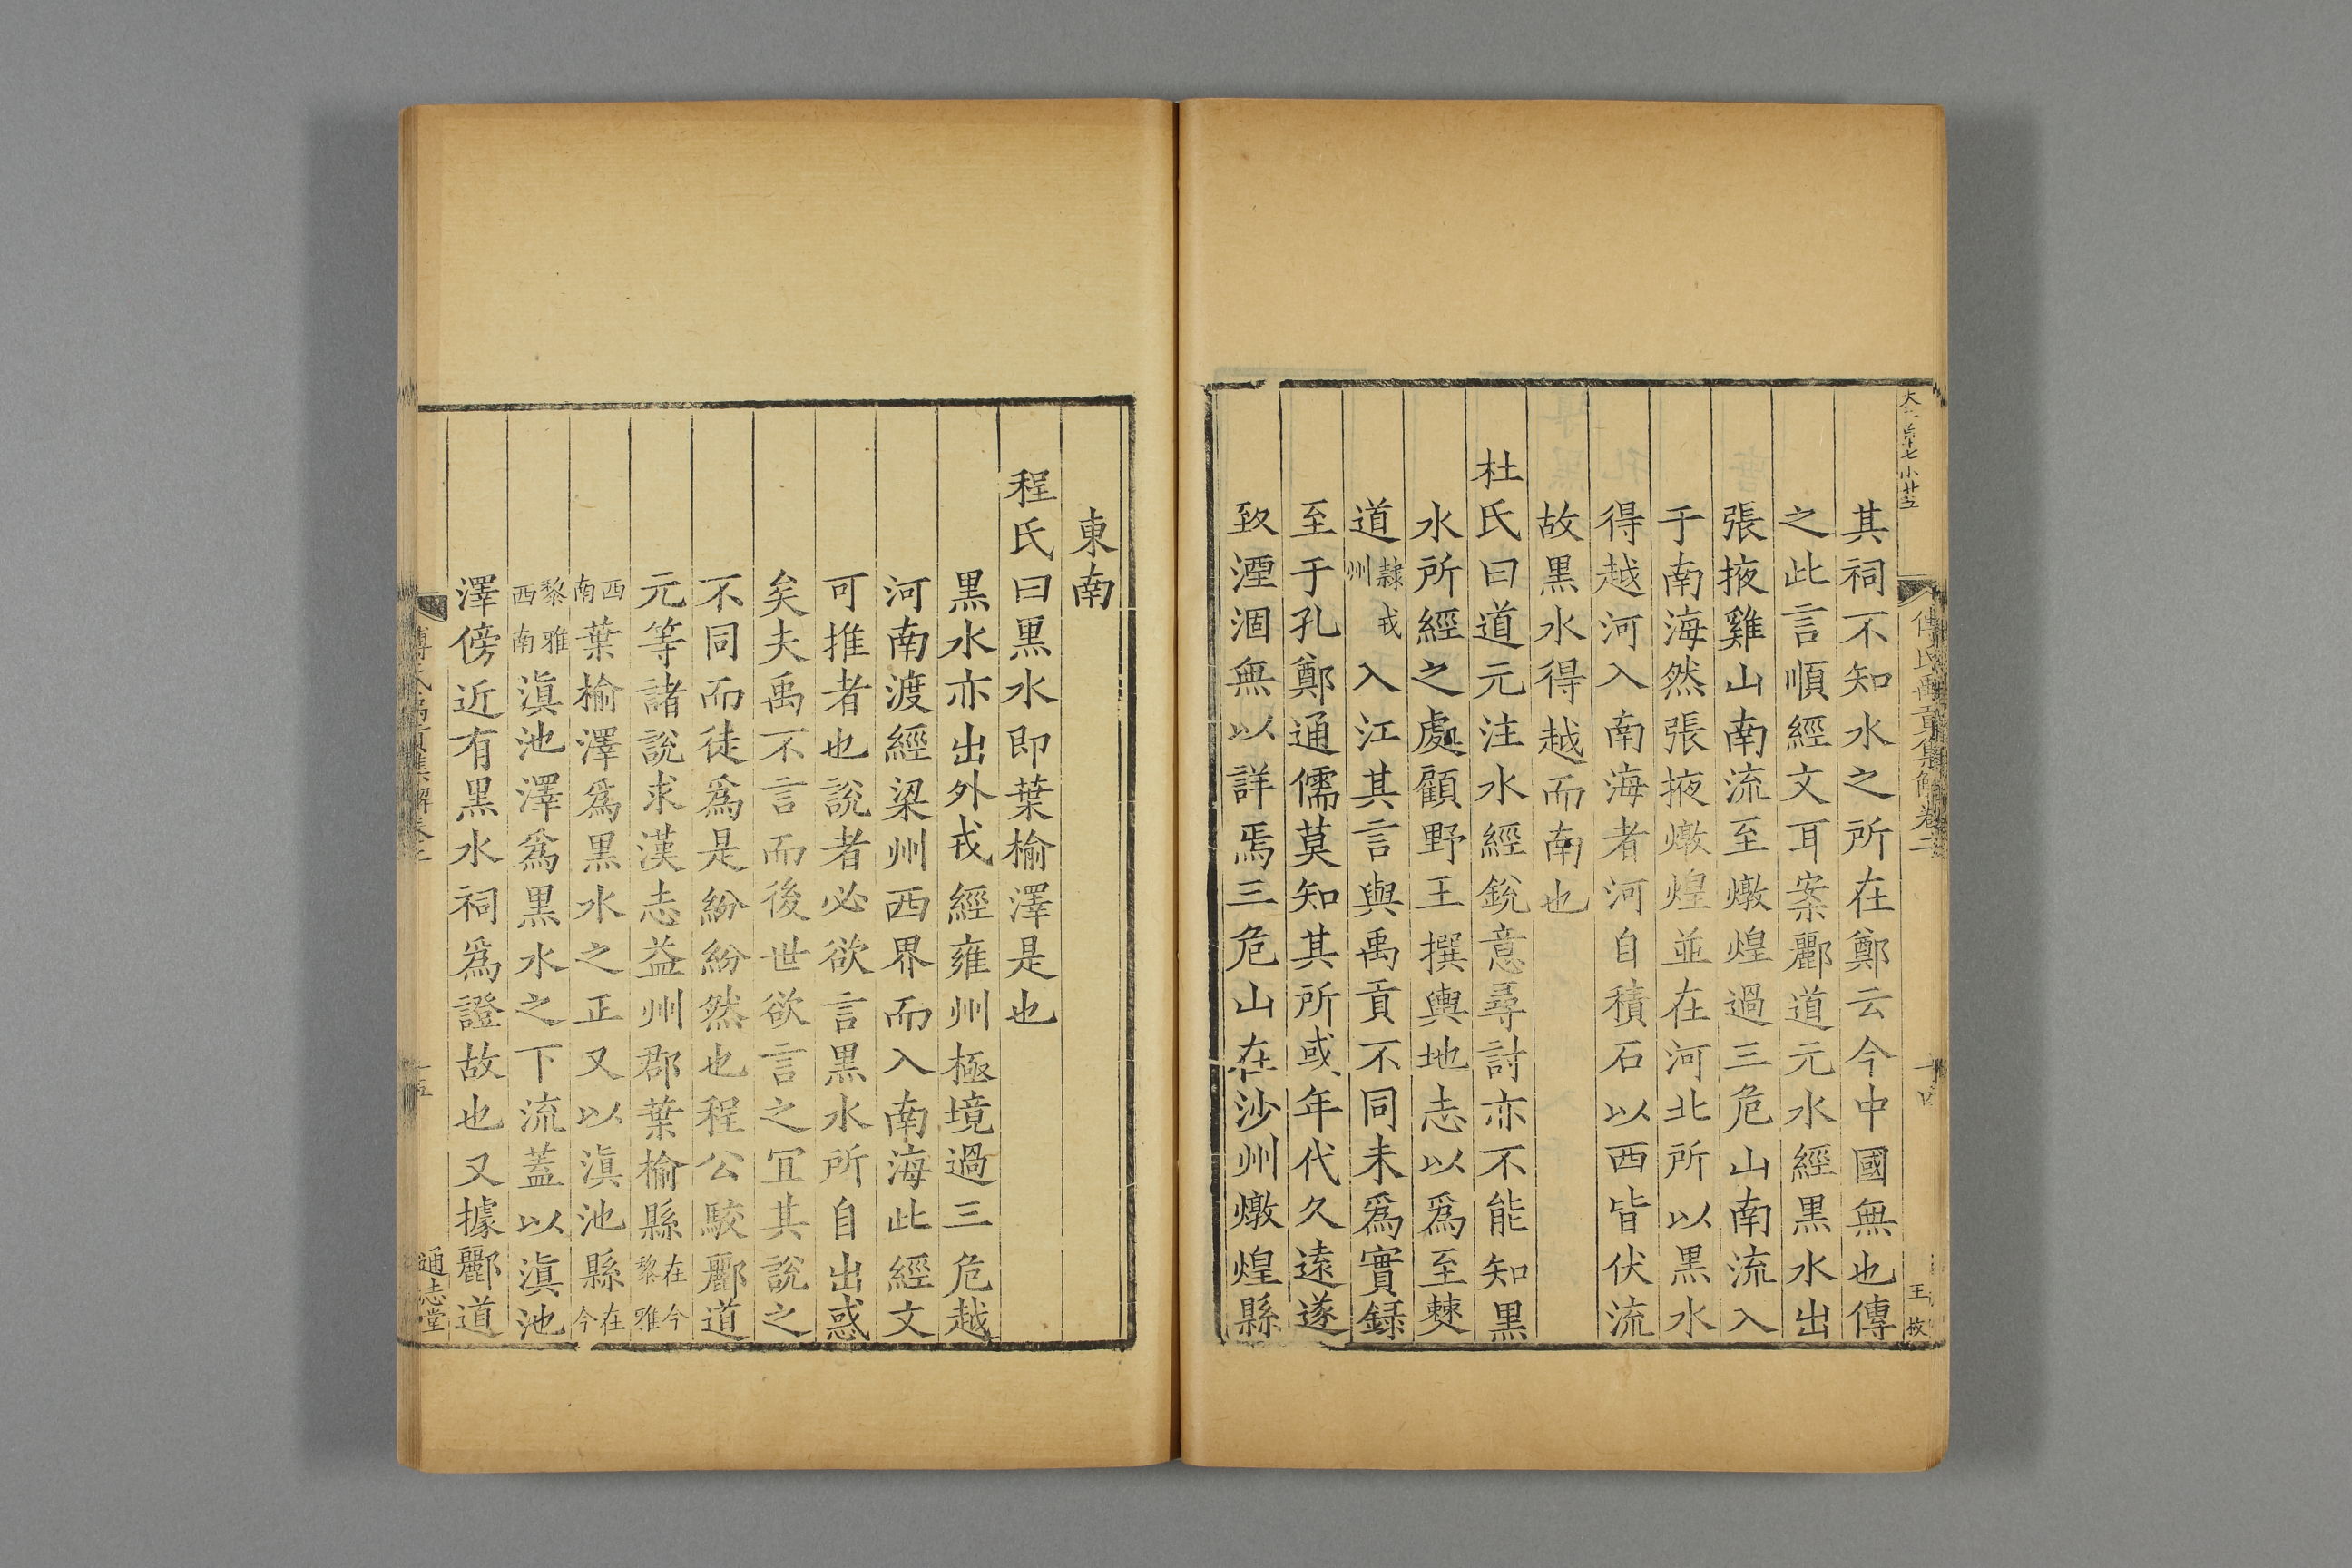 其祠不知水之所在鄭云今中國無也傳
之此言順經文耳案酈道元水經黒水出
張掖雞山南流至燉煌過三危山南流入
于南海然張掖燉煌並在河北所以黒水
得越河入南海者河自積石以西皆伏流
故黒水得越而南也
杜氏曰道元注水經銳意尋討亦不能知黒
水所經之處顧野王撰輿地志以爲至僰
道隷戎州入江其言與禹貢不同未爲實録
至于孔鄭通儒莫知其所或年代久遠遂
致湮涸無以詳焉三危山在沙州燉煌縣
東南
程氏曰黒水即葉榆澤是也
黒水亦出外戎經雍州極境過三危越
河南渡經梁州西界而入南海此經文
可推者也說者必欲言黒水所自出惑
矣夫禹不言而後世欲言之冝其說之
不同而徒爲是紛紛然也程公駮酈道
元等諸說求漢志益州郡葉榆縣在今黎雅
西南葉榆澤爲黒水之正又以滇池縣在今
黎雅西南滇池澤爲黒水之下流蓋以滇池
澤傍近有黒水祠爲證故也又據酈道
通志堂